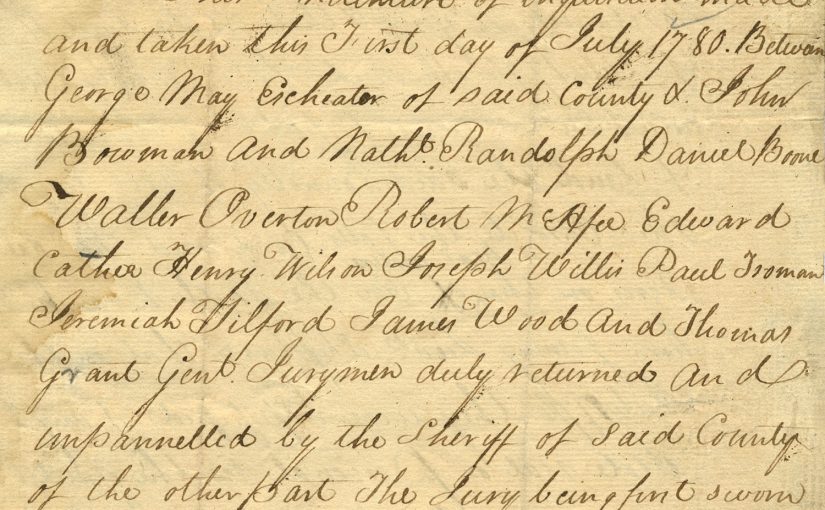 Indenture of inquisition made
and taken this First day of July 1780. Betwean
George May Escheator of said County & John
Bowman And Nathl. Randolph Daniel Boone
Waller Overton Robert McAfee Edward
Cather Henry Wilson Joseph Willis Paul Froman
Jeremiah Tilford James Wood And Thomas
Grant Gent. Jurymen duly returned And
impannelled by the Sheriff of said County
of the other part The Jury being first sworn